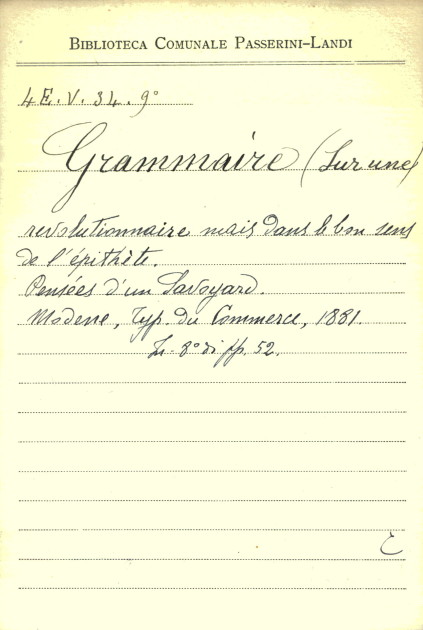 BIBLIOTECA COMUNALE PASSERINI-LANDI
4E.V.34.9°
Grammaire (Sur une)
revolutionnaire mais dans le bon sens
de l'épithète.
Pensées d'un Savoyard.
Modene, Typ. du Commerce, 1881.
In-8° di pp. 52.